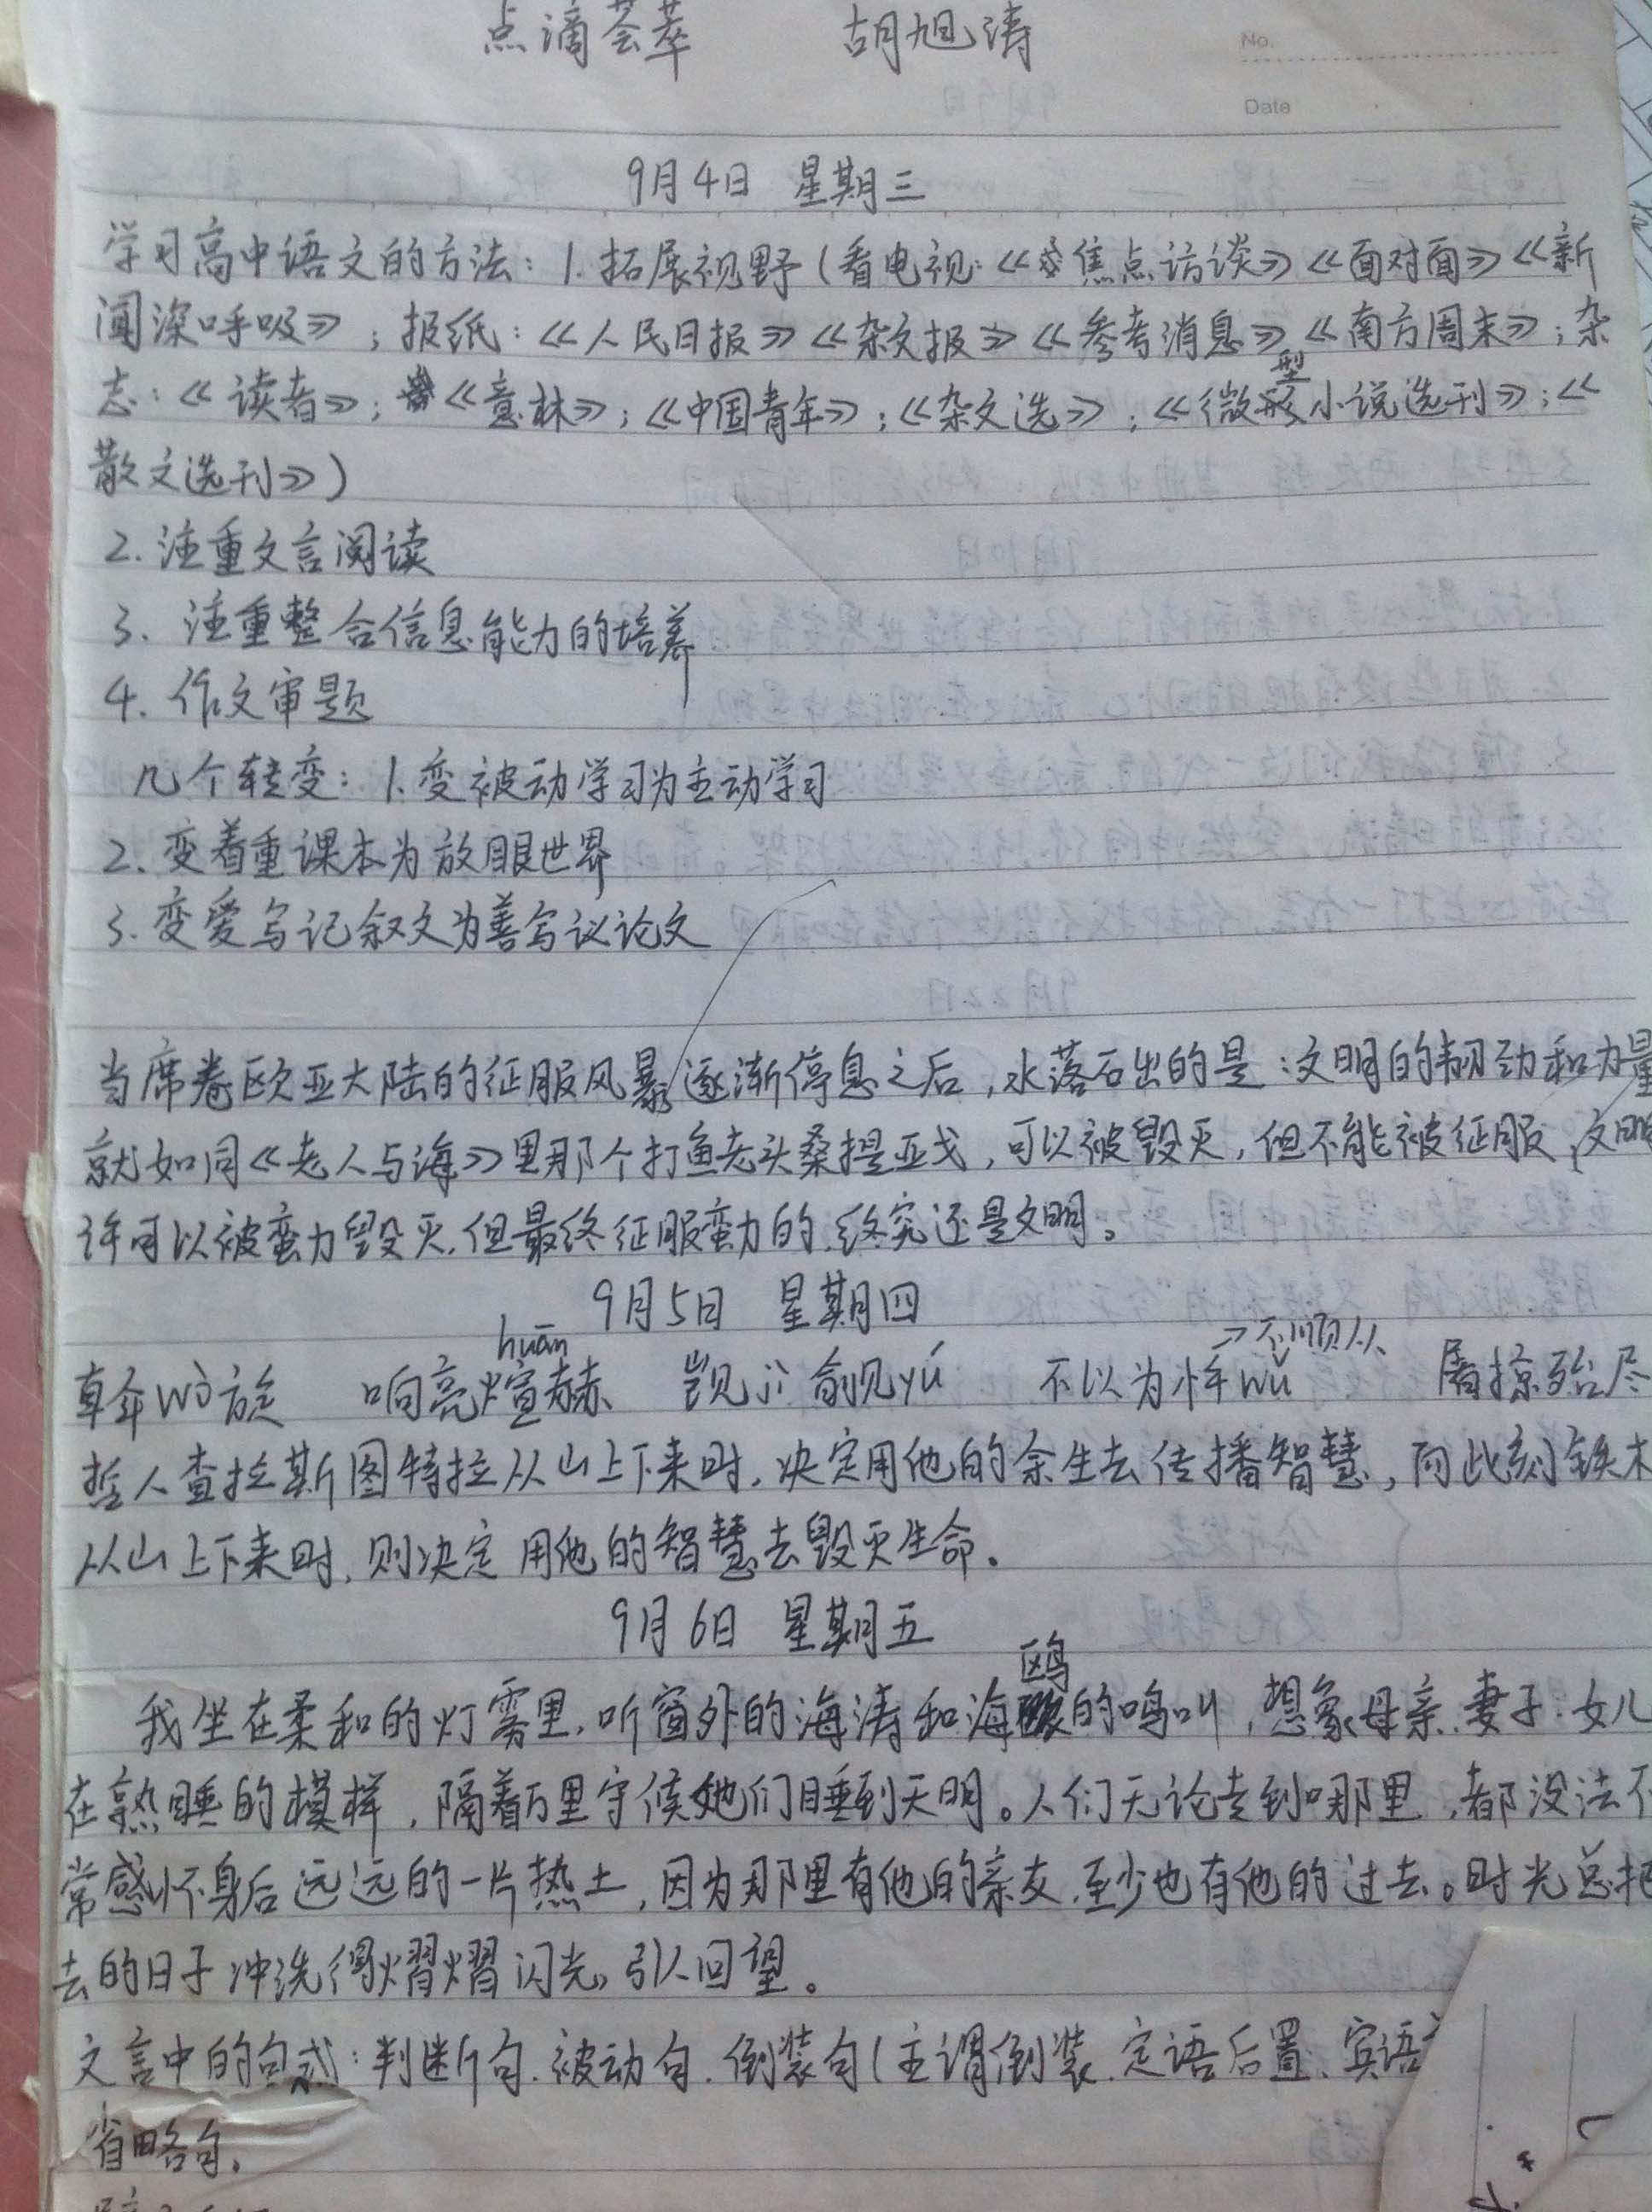 点滴荟萃 胡旭涛
No.
Date
9月4日 星期三
学习高中语文的方法：1.拓展视野（看电视：《焦点访谈》《面对面》《新
闻深呼吸》；报纸：《人民日报》《杂文报》《参考消息》《南方周末》；杂
志：《读者》；《意林》；《中国青年》；《杂文选》；《微型小说选刊》；《
散文选刊》）
2.注重文言阅读
3.注重整合信息能力的培养
4.作文审题
几个转变：1.变被动学习为主动学习
2.变着重课本为放眼世界
3.变爱写记叙文为善写议论文
当席卷欧亚大陆的征服风暴逐渐停息之后，水落石出的是：文明的韧劲和力量
就如同《老人与海》里那个打鱼老头桑提亚戈，可以被毁灭，但不能被征服，文明
许可以被蛮力毁灭，但最终征服蛮力的，终究还是文明。
9月5日 星期四
huān →不顺从
斡wò旋 响亮煊赫 觊jì觎yú 不以为忤wǔ 屠掠殆尽
哲人查拉斯图特拉从山上下来时，决定用他的余生去传播智慧，而此刻铁木
从山上下来时，则决定用他的智慧去毁灭生命。
9月6日 星期五
我坐在柔和的灯雾里，听窗外的海涛和海鸥的鸣叫，想象母亲、妻子、女儿
在熟睡的模样，隔着万里守候她们睡到天明。人们无论走到哪里，都没法不
常感怀身后远远的一片热土，因为那里有他的亲友，至少也有他的过去。时光总把
去的日子冲洗得熠熠闪光，引人回望。
文言中的句式：判断句、被动句、倒装句（主谓倒装、定语后置、宾语
省略句。